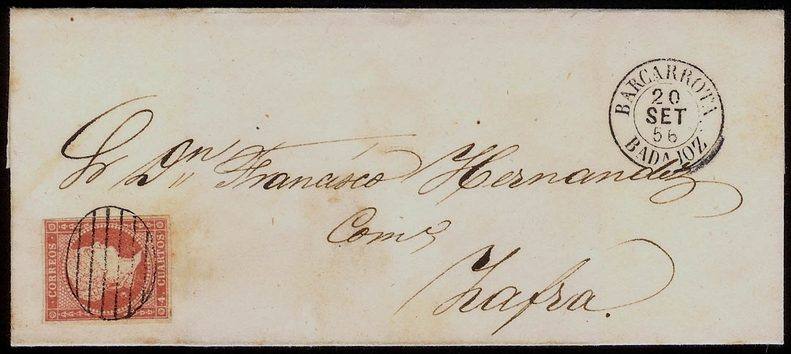 BARCARROTA
20
SET
56
BADAJOZ
Sr Dn Francisco Hernandez
Com^o
Zafra.
CORREOS
4 CUARTOS